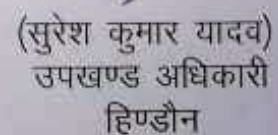 (सुरेश कुमार यादव)
उपखण्ड अधिकारी
हिण्डौन